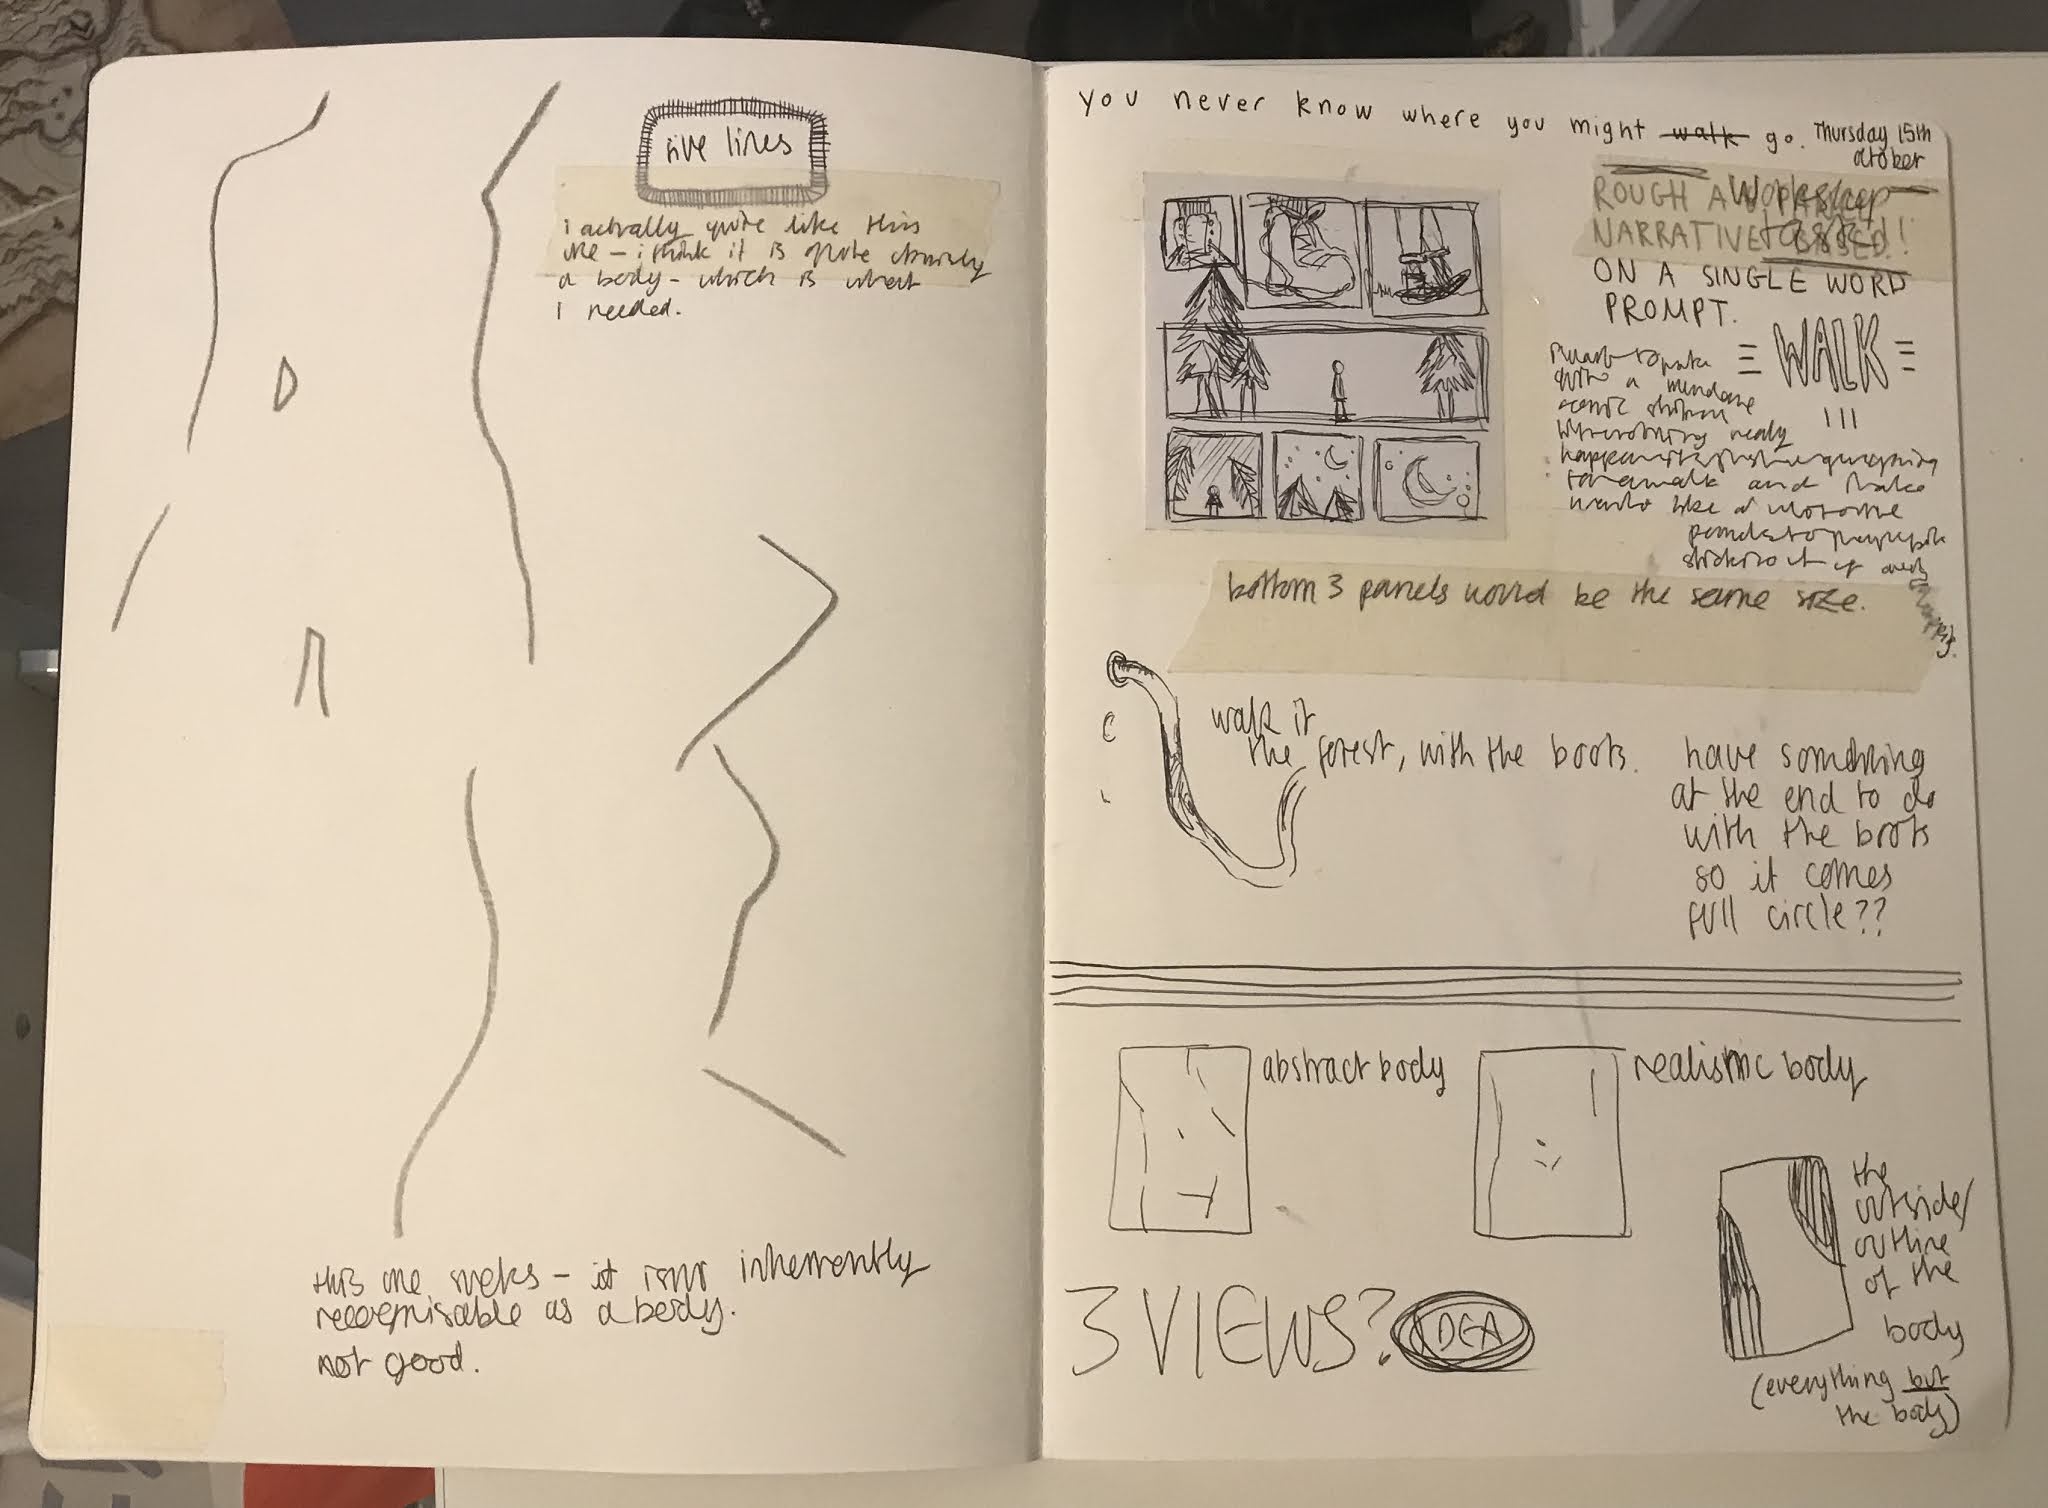 five lines
i actually quite like this
one - i think it is quite obviously
a body - which is what
i needed.
this one sucks - it isnt inherrently
recognisable as a body.
not good.
you never know where you might walk go.
Thursday 15th
october
ROUGH A
NARRATIVE BASED!!
ON A SINGLE WORD
PROMPT.
WALK
a mundane
nothing really
walk and make
like a
bottom 3 panels would be the same size.
walk it
the forest, with the boots.
have something
at the end to do
with the boots
so it comes
full circle??
abstract body
realistic body
the
outside/
outline
of the
body
(everything but
the body)
3 VIEWS?
IDEA